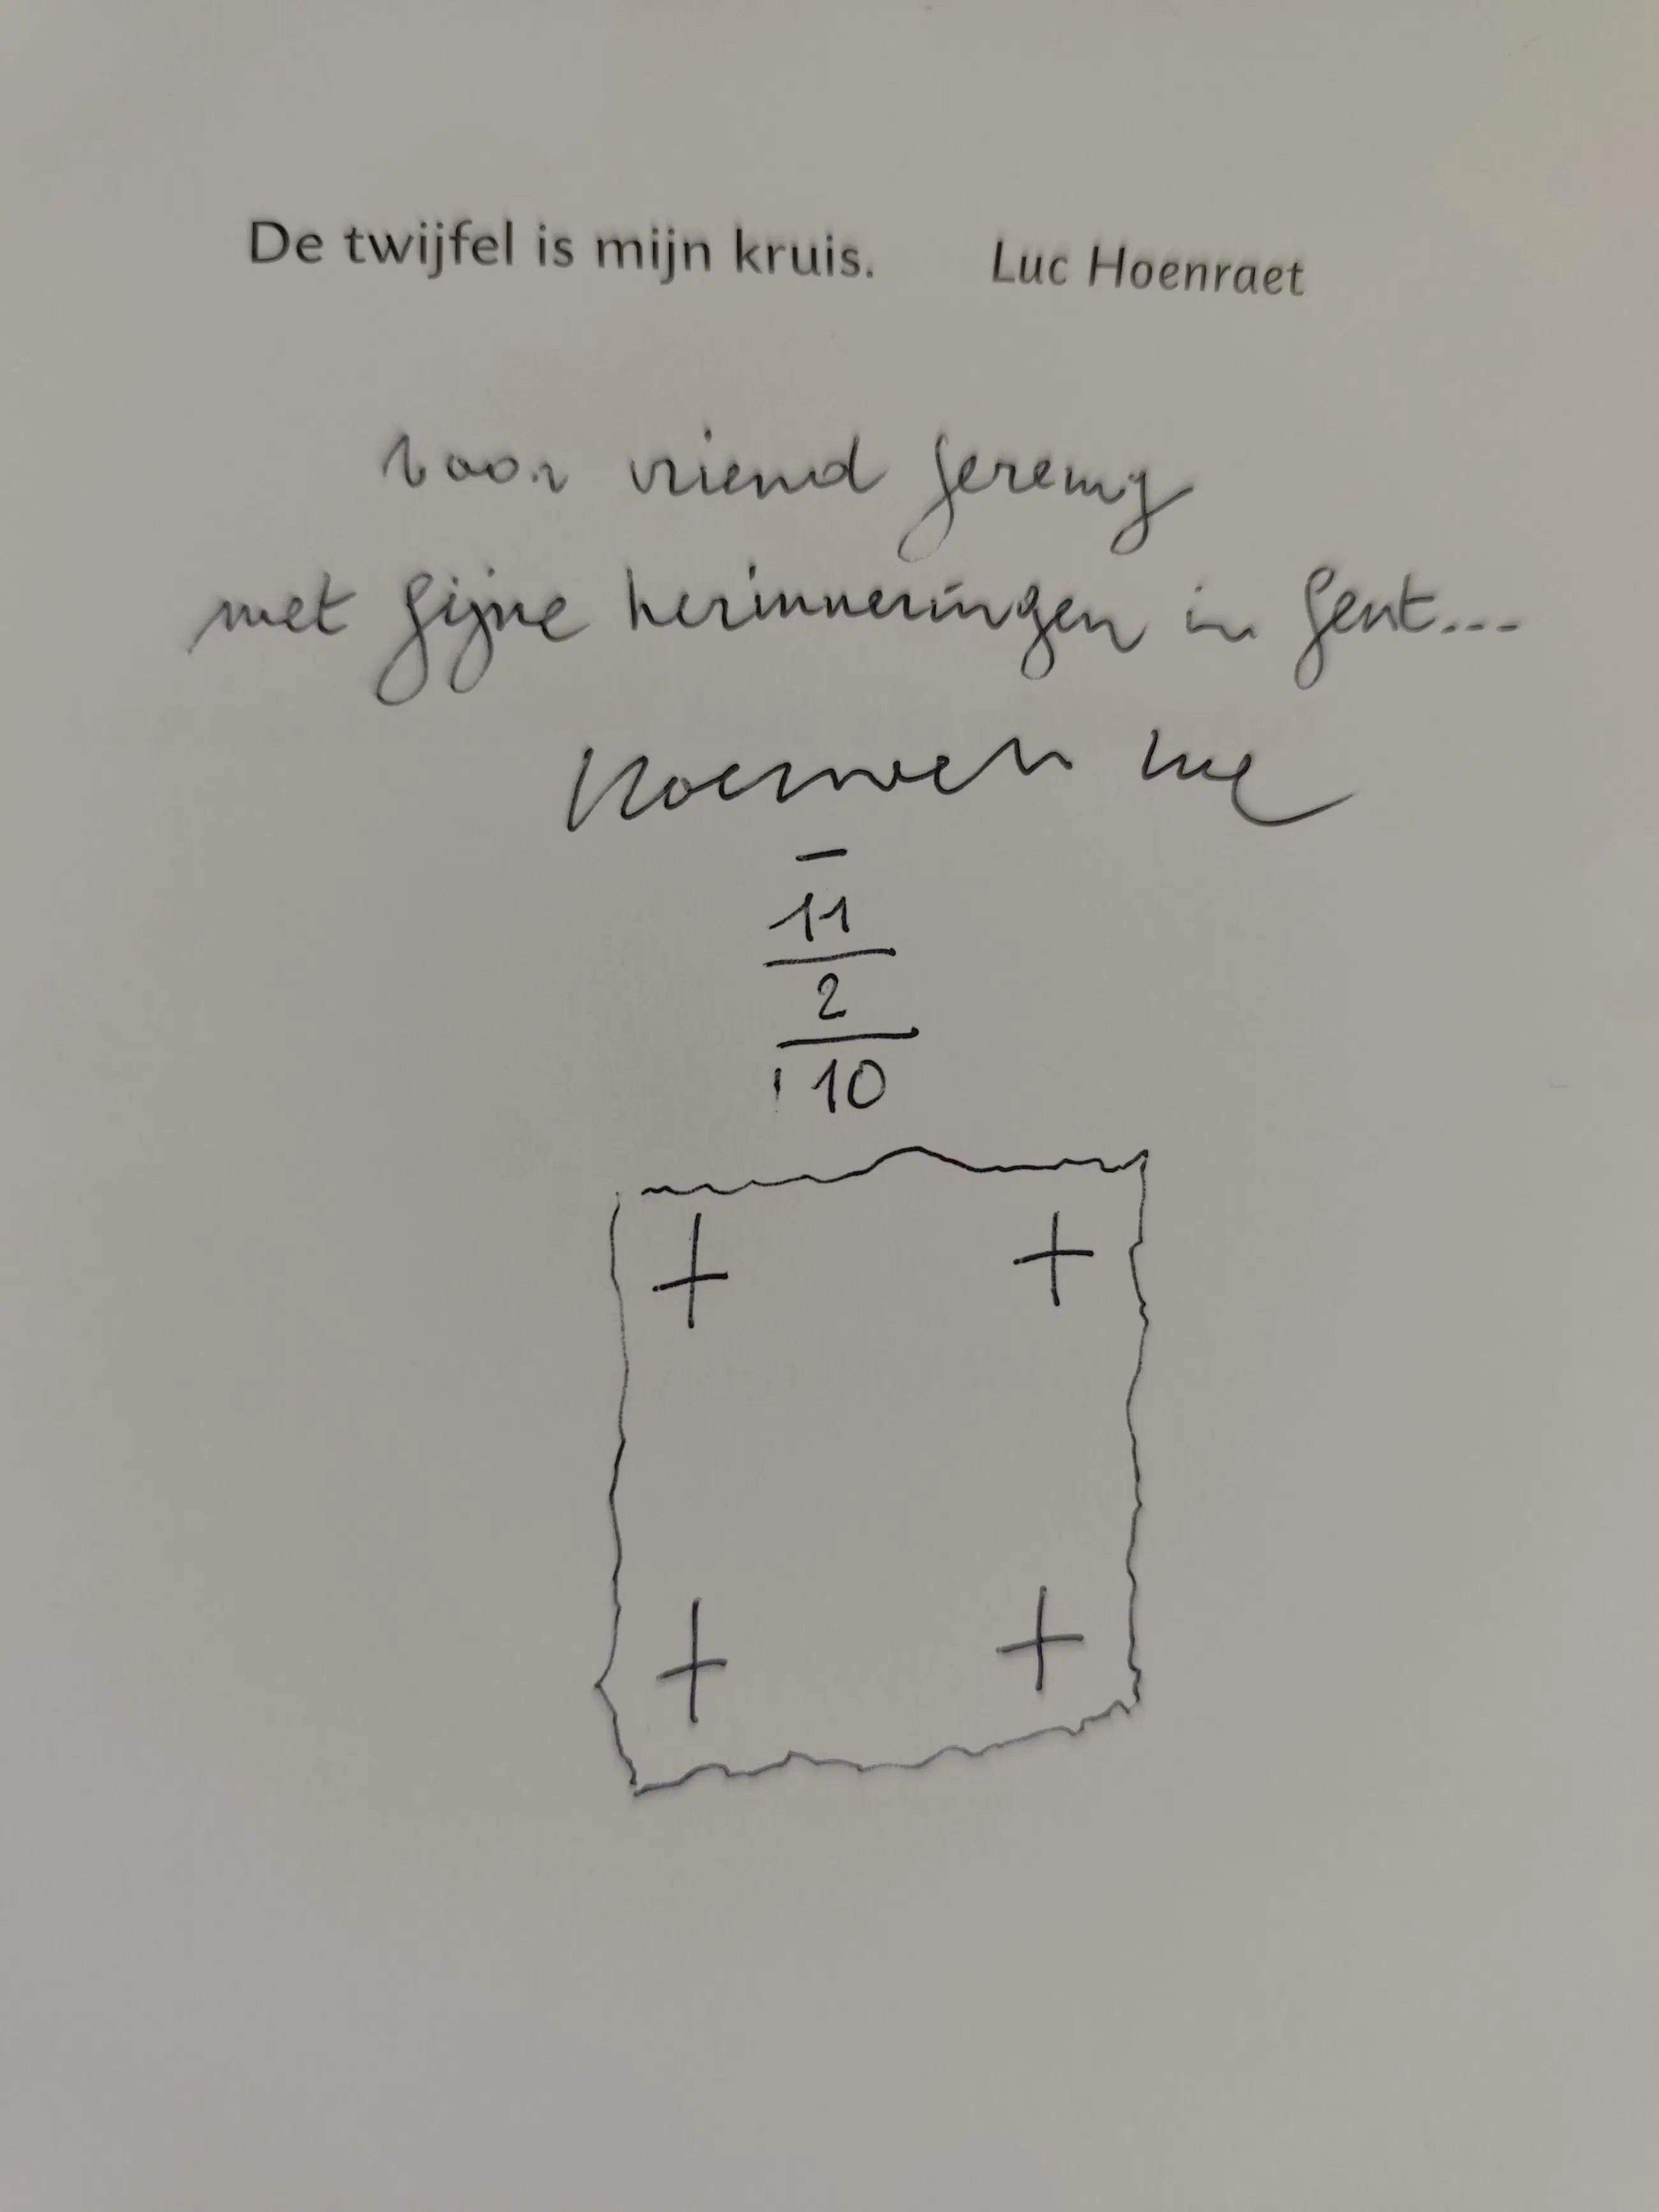 De twijfel is mijn kruis. Luc Hoenraet
voor vriend Jeremy
met fijne herinneringen in Gent...
Luc
11
2
'10